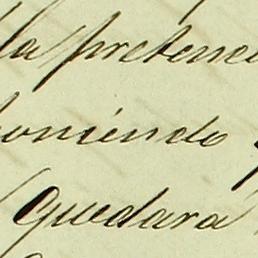 la pretenci
oniéndo
quedara